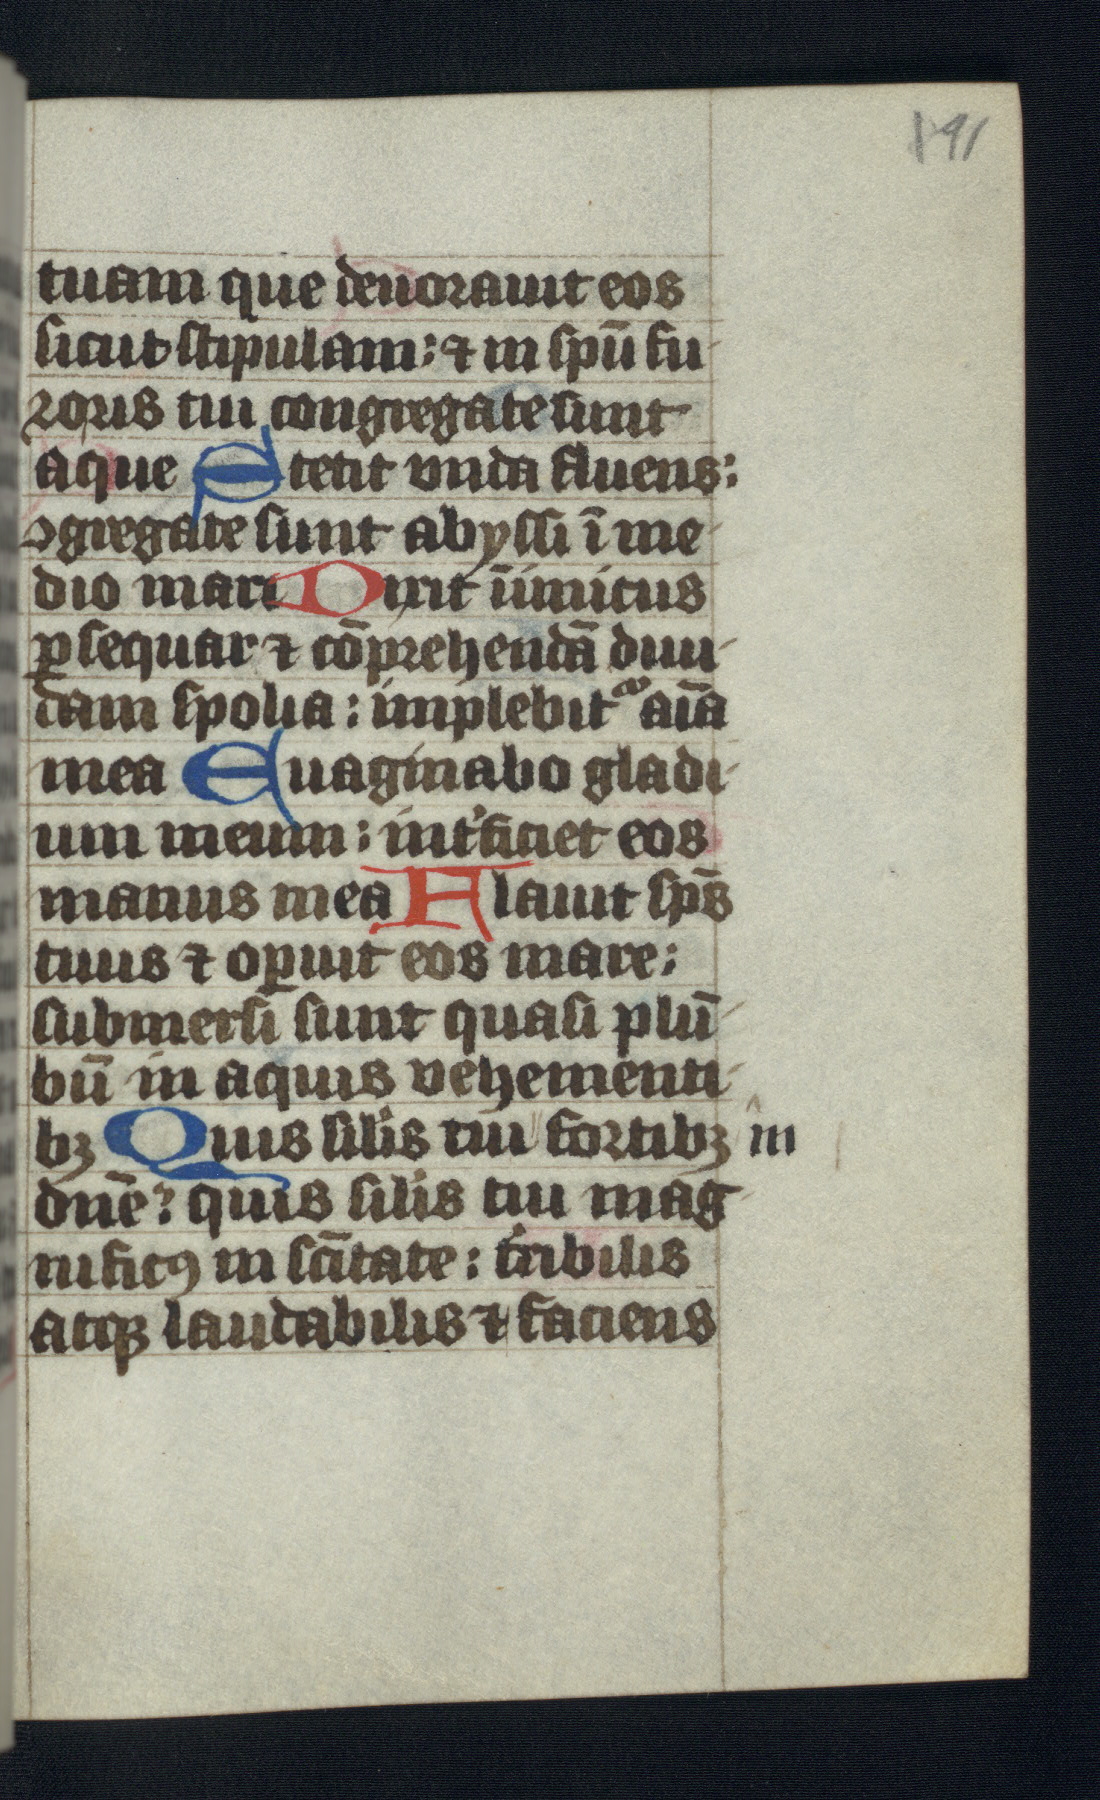 191
tuam que deuorauit eos
sicut stipulam: ⁊ in spū fu
roris tui congregate sunt
aque Stetit vnda fluens:
ꝯgregate sunt abyssi ī me
dio mari Dixit inimicus
ꝑsequar ⁊ cōprehendā diui
dam spolia: implebit᷑ aīa
mea Euaginabo gladi
um meum: int͛ficiet eos
manus mea Flauit sp̄s
tuus ⁊ oꝑuit eos mare:
submersi sunt quasi plū
bū in aquis vehementi
bꝫ Quis silis tui fortibꝫ in
dn̄e: quis silis tui mag
nificꝰ in sc̄itate: t͛ribilis
atqꝫ laudabilis ⁊ faciens